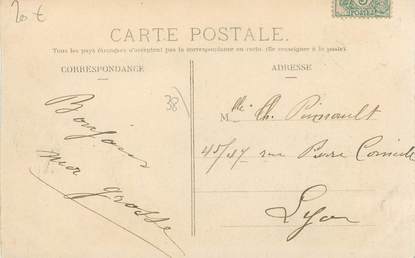 20 €
CARTE POSTALE.
Tous les pays étrangers n'acceptent pas la correspondance au recto. (Se renseigner à la poste).
CORRESPONDANCE
ADRESSE
38
Bonjour
ma grosse
Mlle Ch. Pinsault
45/47 rue Pierre Corneille
Lyon